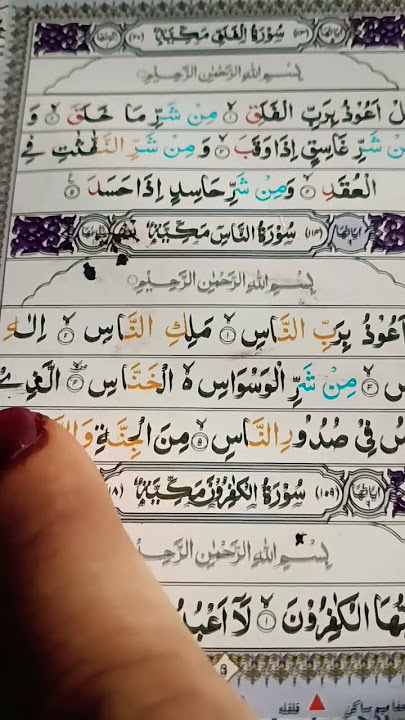 سُوْرَةُ الْفَلَقِ مَكِّيَّةٌ
بِسْمِ اللّٰهِ الرَّحْمٰنِ الرَّحِيْمِ
اَعُوْذُ بِرَبِّ الْفَلَقِ ۙ مِنْ شَرِّ مَا خَلَقَ ۙ وَ
شَرِّ غَاسِقٍ اِذَا وَقَبَ ۙ وَمِنْ شَرِّ النَّفّٰثٰتِ فِى
الْعُقَدِ ۙ وَمِنْ شَرِّ حَاسِدٍ اِذَا حَسَدَ
سُوْرَةُ النَّاسِ مَكِّيَّةٌ (۱۱۴) اٰیَاتُهَا
بِسْمِ اللّٰهِ الرَّحْمٰنِ الرَّحِيْمِ
اَعُوْذُ بِرَبِّ النَّاسِ ۙ مَلِكِ النَّاسِ ۙ اِلٰهِ
مِنْ شَرِّ الْوَسْوَاسِ ۙ الْخَنَّاسِ ۙ الَّذِىْ
فِىْ صُدُوْرِ النَّاسِ ۙ مِنَ الْجِنَّةِ
سُوْرَةُ الْكٰفِرُوْنَ مَكِّيَّةٌ (۱۰۹) اٰیَاتُهَا
بِسْمِ اللّٰهِ الرَّحْمٰنِ الرَّحِيْمِ
الْكٰفِرُوْنَ ۙ لَاۤ اَعْبُدُ
قلقلہ